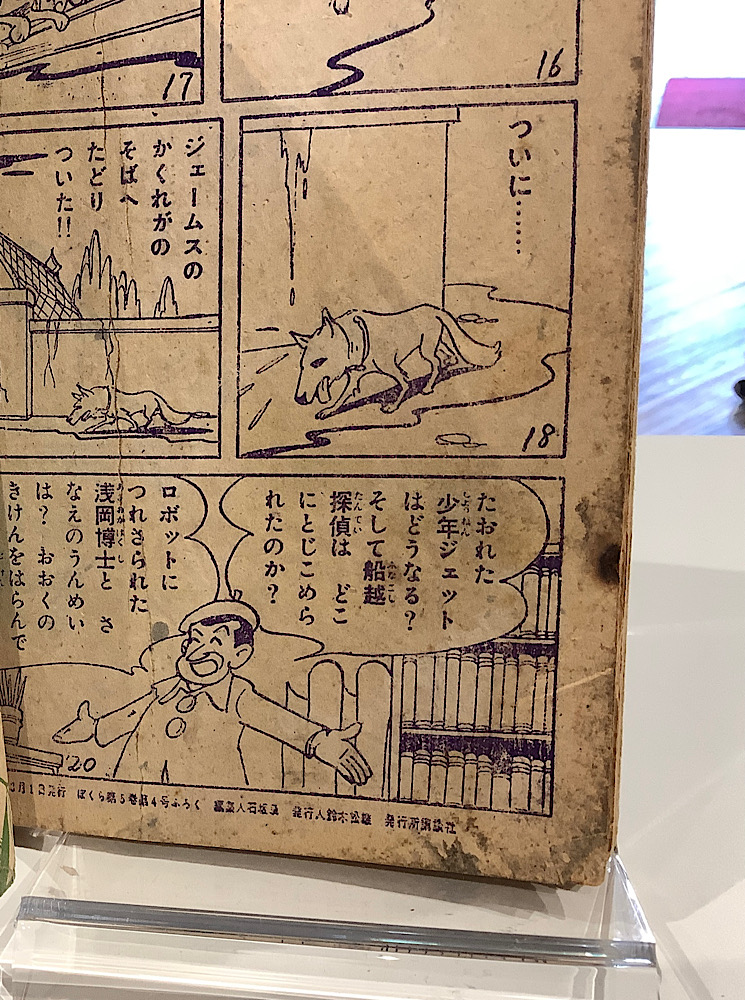 16
17
ついに……
18
ジェームスの
かくれがの
そばへ
たどり
ついた!!
たおれた
少年ジェット
はどうなる?
そして船越
探偵は どこ
にとじこめら
れたのか?
ロボットに
つれさられた
浅岡博士と さ
なえのうんめい
は? おおくの
きけんをはらんで
20
月1日発行 ぼくら第5巻第4号ふろく 編集人石坂 発行人鈴木松雄 発行所講談社